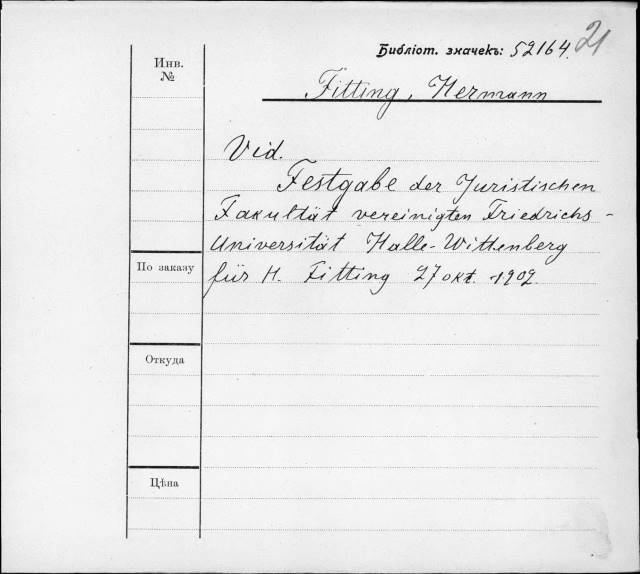 Библіот. значекъ: 52164. 21
Инв.
№
Fitting, Hermann
Vid.
Festgabe der Juristischen
Fakultät vereinigten Friedrichs-
Universität Halle-Wittenberg
für H. Fitting 27 okt. 1902.
По заказу
Откуда
Цѣна